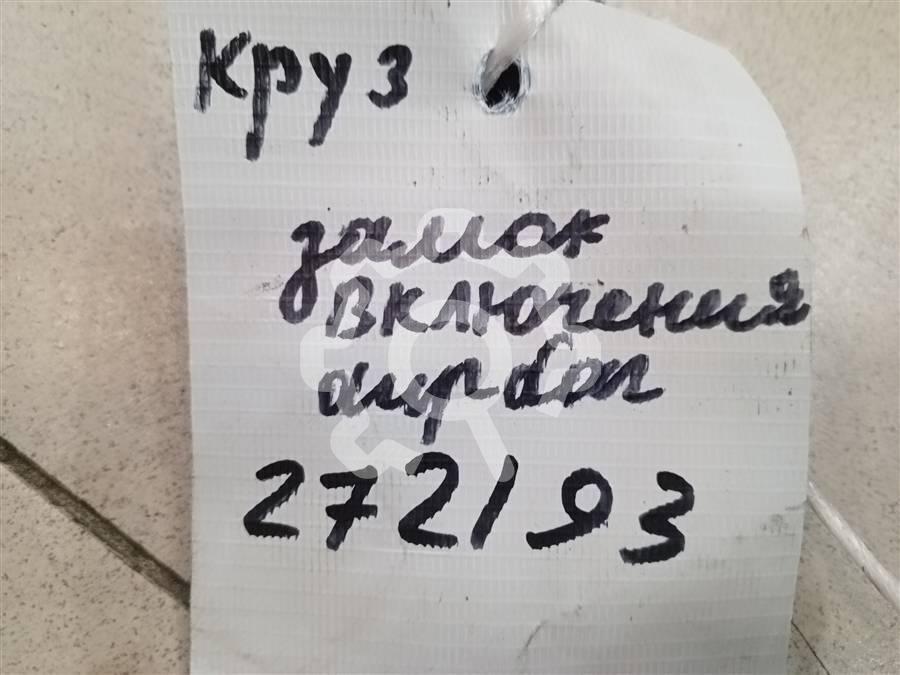 круз
замок
включения
аирбаг
272193